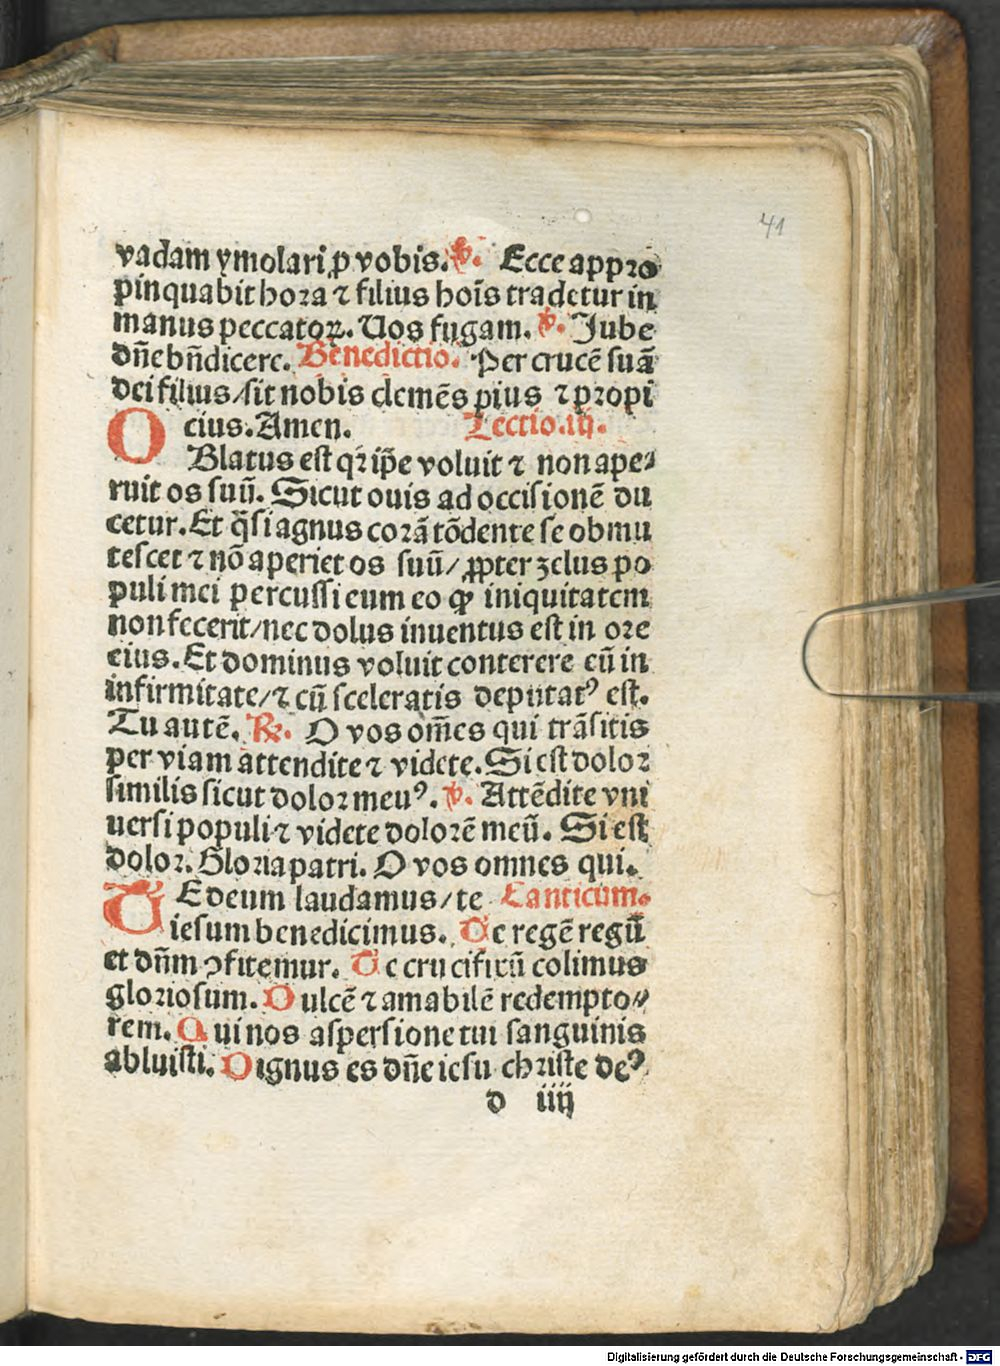 41
vadam ymolari ꝓ vobis. ℣. Ecce appꝛo
pinquabit hoꝛa ⁊ filius hoīs tradetur in
manus peccatoꝝ. Uos fugam. ℣. Jube
dn̄e bn̄dicere. Benedictio. Per crucē suā
dei filius/sit nobis clemēs pius ⁊ pꝛopi
cius. Amen. Lectio.iij.
OBlatus est qꝛ ip̄e voluit ⁊ non ape⸗
ruit os suū. Sicut ouis ad occisionē du
cetur. Et q̄si agnus coꝛā tōdente se obmu
tescet ⁊ nō aperiet os suū/ ꝓpter zelus po
puli mei percussi eum eo ꝙ iniquitatem
non fecerit/nec dolus inuentus est in oꝛe
eius. Et dominus voluit conterere eū in
infirmitate/⁊ cū sceleratis deputatꝰ est.
Tu autē. ℟. O vos om̄es qui trāsitis
per viam attendite ⁊ videte. Si est doloꝛ
similis sicut doloꝛ meuꝰ. ℣. Attēdite vni
uersi populi ⁊ videte doloꝛē meū. Si est
doloꝛ. Gloꝛia patri. O vos omnes qui.
TE deum laudamus/te Canticum.
iesum benedicimus. Te regē regū
et dn̄m ꝯfitemur. Te crucifixū colimus
gloꝛiosum. Dulcē ⁊ amabilē redempto⸗
rem. Qui nos aspersione tui sanguinis
abluisti. Dignus es dn̄e iesu chꝛiste deꝰ
d iiij
Digitalisierung gefördert durch die Deutsche Forschungsgemeinschaft - DFG